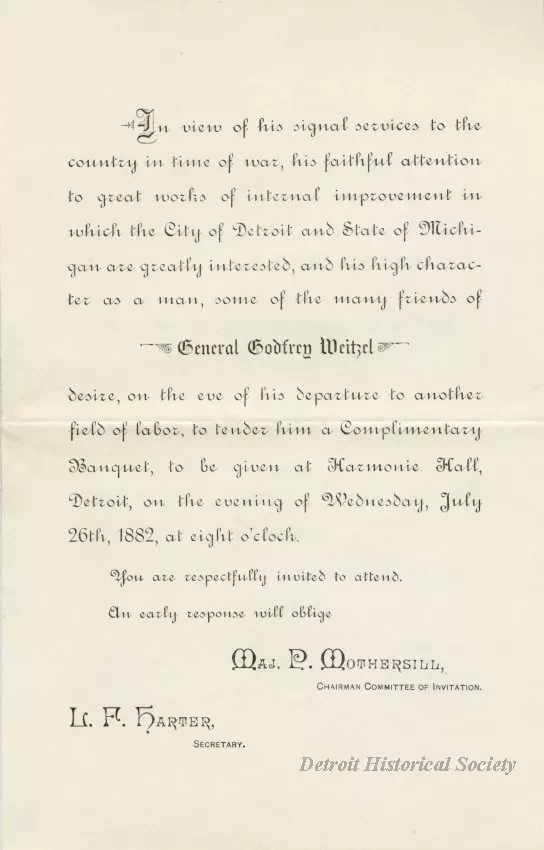 In view of his signal services to the
country in time of war, his faithful attention
to great works of internal improvement in
which the City of Detroit and State of Michi-
gan are greatly interested, and his high charac-
ter as a man, some of the many friends of
General Godfrey Weitzel
desire, on the eve of his departure to another
field of labor, to tender him a Complimentary
Banquet, to be given at Harmonie Hall,
Detroit, on the evening of Wednesday, July
26th, 1882, at eight o'clock.
You are respectfully invited to attend.
An early response will oblige
Maj. P. Mothersill,
Chairman Committee of Invitation.
L. F. Harter,
Secretary.
Detroit Historical Society